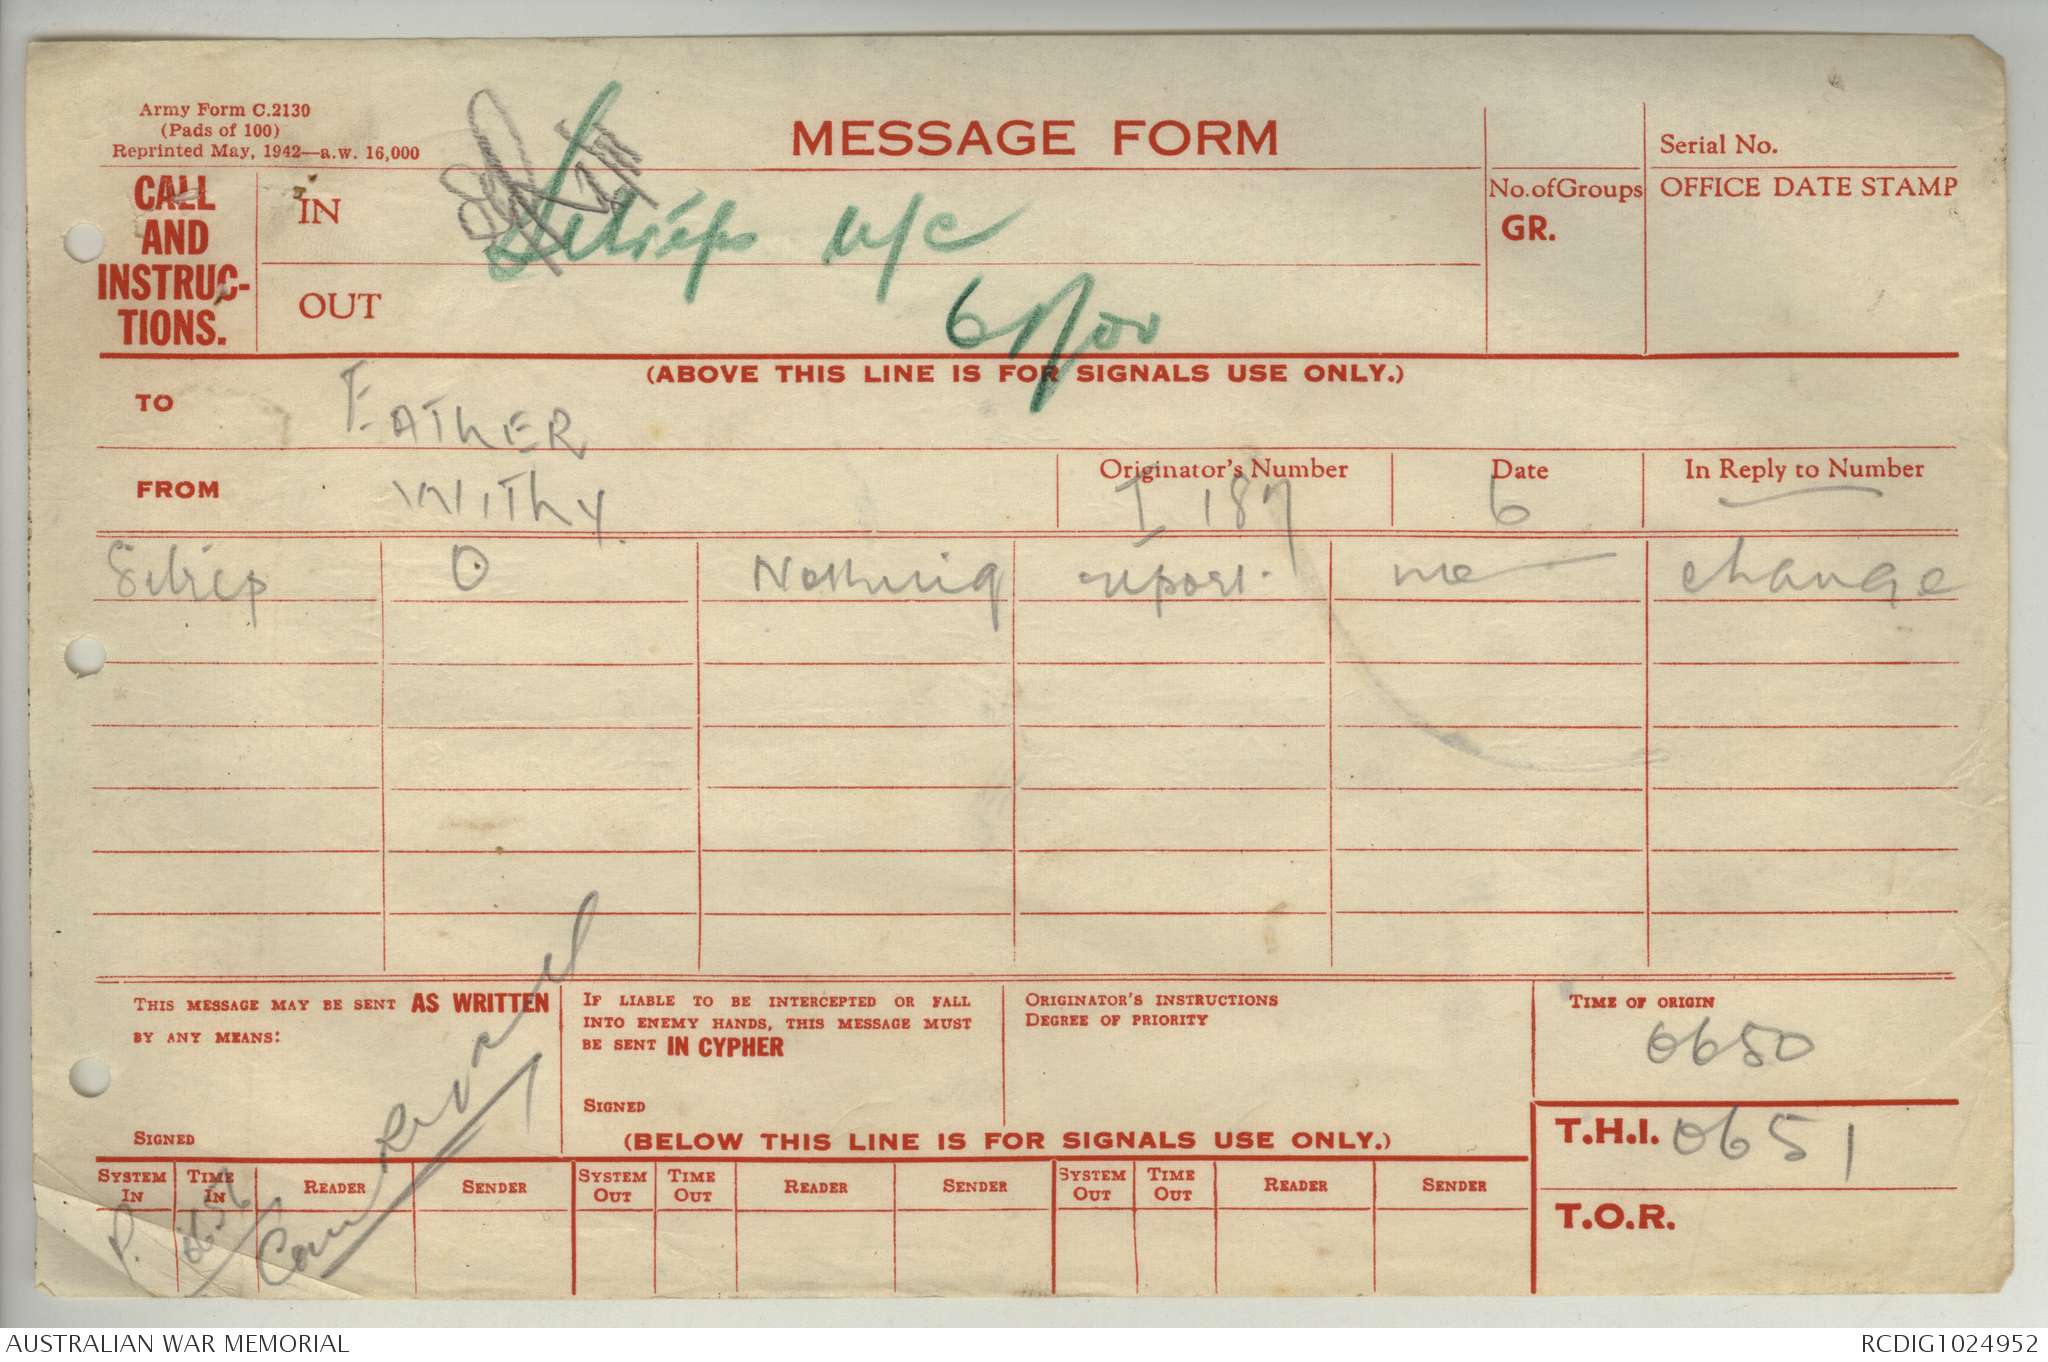 Army Form C.2130
(Pads of 100)
Reprinted May, 1942—a.w. 16,000
MESSAGE FORM
Serial No.
CALL AND INSTRUC-TIONS.
IN
Sitreps u/c
OUT
No. of Groups
GR.
OFFICE DATE STAMP
(ABOVE THIS LINE IS FOR SIGNALS USE ONLY.)
TO FATHER
FROM WITHY
Originator's Number I 187
Date 6
In Reply to Number —
Sitrep O Nothing report. no change
THIS MESSAGE MAY BE SENT AS WRITTEN
BY ANY MEANS:
SIGNED
IF LIABLE TO BE INTERCEPTED OR FALL
INTO ENEMY HANDS, THIS MESSAGE MUST
BE SENT IN CYPHER
SIGNED
ORIGINATOR'S INSTRUCTIONS
DEGREE OF PRIORITY
TIME OF ORIGIN
0650
T.H.I. 0651
T.O.R.
(BELOW THIS LINE IS FOR SIGNALS USE ONLY.)
SYSTEM IN TIME IN READER SENDER SYSTEM OUT TIME OUT READER SENDER SYSTEM OUT TIME OUT READER SENDER
P. 0656
AUSTRALIAN WAR MEMORIAL
RCDIG1024952